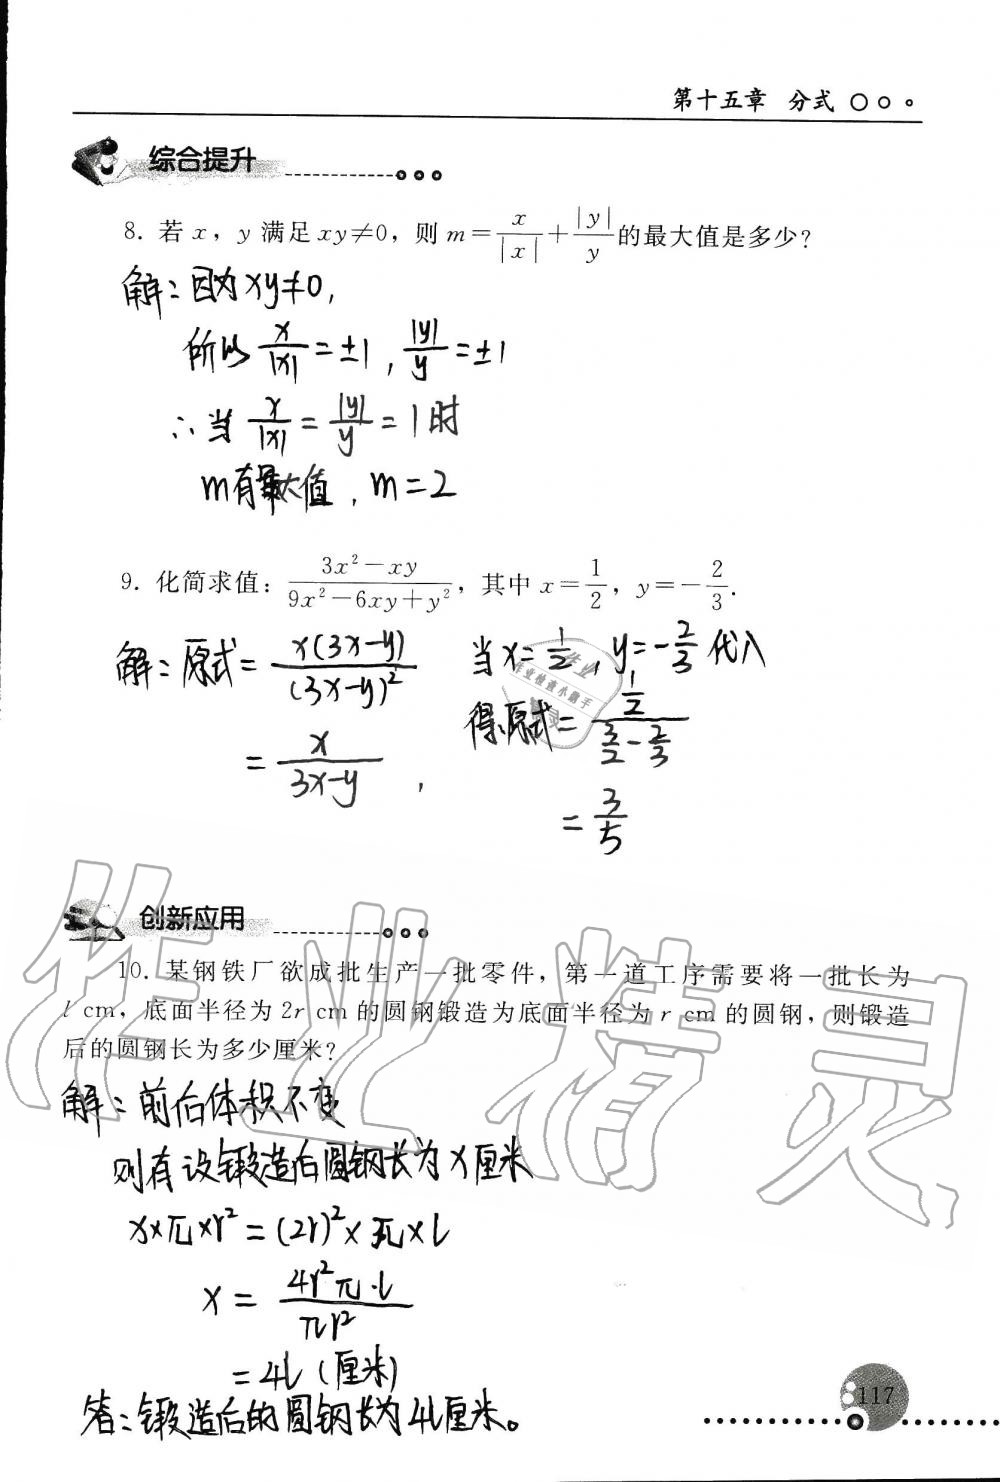 第十五章 分式
综合提升
8. 若 x，y 满足 xy≠0，则 m=x/|x|+|y|/y 的最大值是多少？
解：因为xy≠0，
所以 x/|x|=±1，|y|/y=±1
∴当 x/|x|=|y|/y=1时
m有最大值，m=2
9. 化简求值：(3x²-xy)/(9x²-6xy+y²)，其中 x=1/2，y=-2/3.
解：原式=x(3x-y)/(3x-y)²
=x/(3x-y)，
当x=1/2，y=-2/3代入
得原式=(1/2)/(3/2-2/3)
=3/5
创新应用
10. 某钢铁厂欲成批生产一批零件，第一道工序需要将一批长为
l cm，底面半径为 2r cm 的圆钢锻造为底面半径为 r cm 的圆钢，则锻造
后的圆钢长为多少厘米？
解：前后体积不变
则有设锻造后圆钢长为x厘米
x×π×r²=(2r)²×π×l
x=4r²π·l/πr²
=4l（厘米）
答：锻造后的圆钢长为4l厘米。
117
作业精灵
作业
作业检查小助手